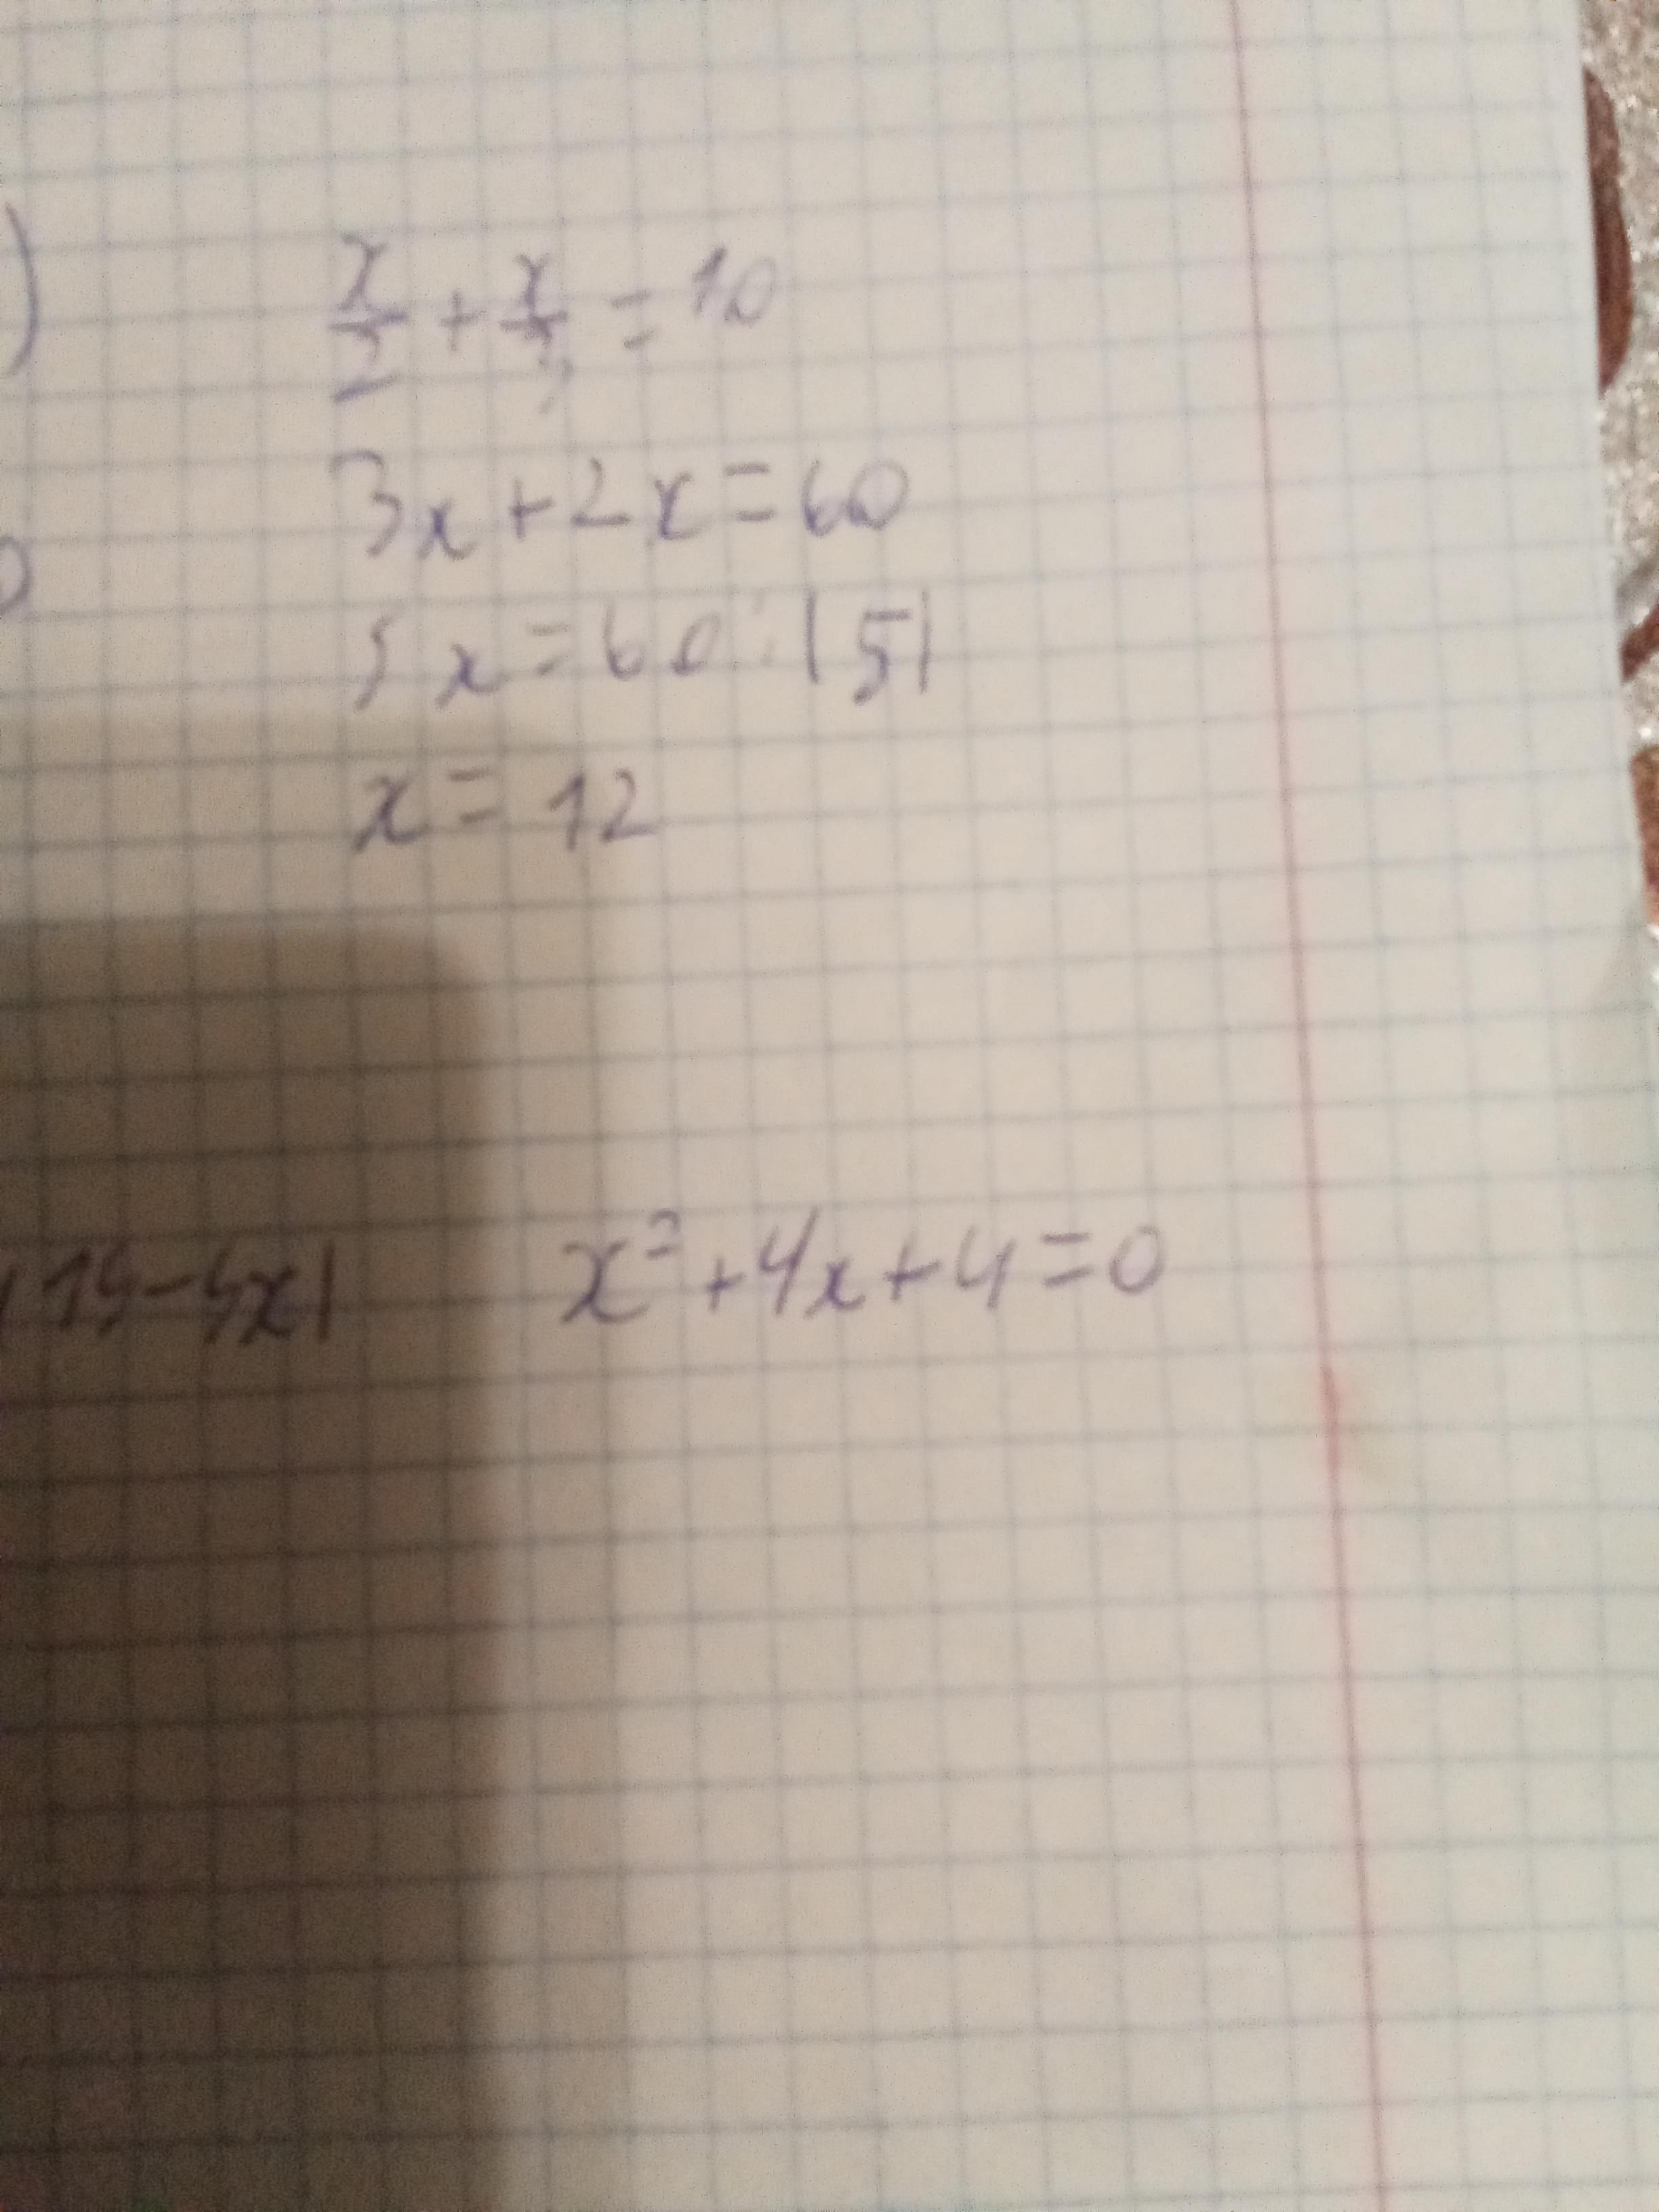 )
x/2 + x/3 = 10
3x + 2x = 60
5x = 60 : |5|
x = 12
|15 - 5x| x² + 4x + 4 = 0